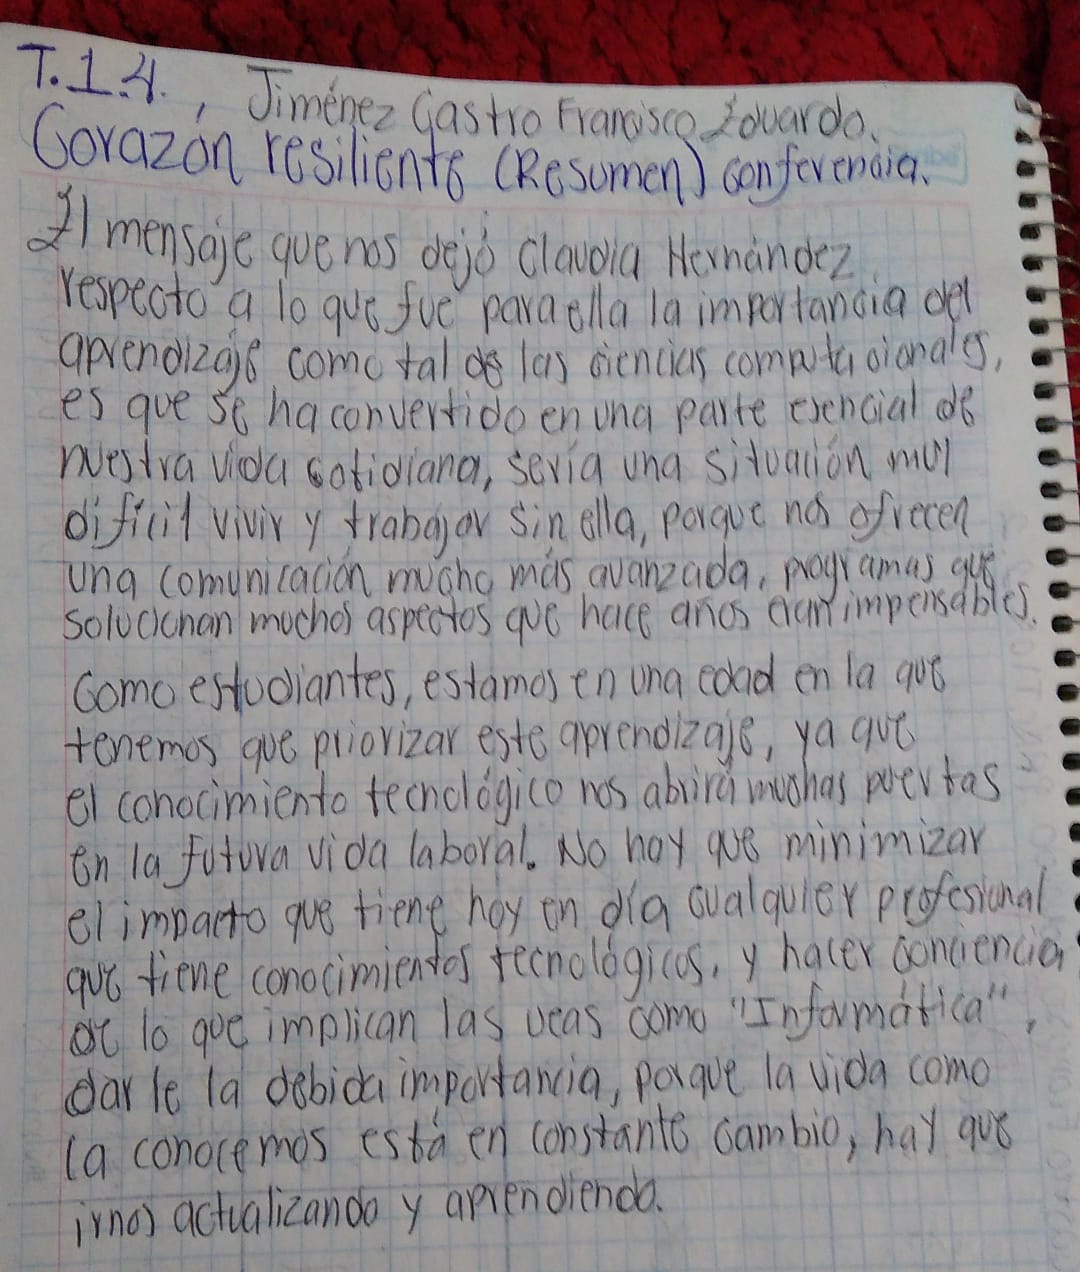 T.1.4., Jiménez Castro Francisco Eduardo.
Corazón resiliente (Resumen) conferencia.
El mensaje que nos dejó Claudia Hernández
respecto a lo que fue para ella la importancia del
aprendizaje como tal de las ciencias computacionales,
es que se ha convertido en una parte esencial de
nuestra vida cotidiana, sería una situación muy
difícil vivir y trabajar sin ella, porque nos ofrecen
una comunicación mucho más avanzada, programas que
solucionan muchos aspectos que hace años eran impensables.
Como estudiantes, estamos en una edad en la que
tenemos que priorizar este aprendizaje, ya que
el conocimiento tecnológico nos abrirá muchas puertas
en la futura vida laboral. No hay que minimizar
el impacto que tiene hoy en día cualquier profesional
que tiene conocimientos tecnológicos, y hacer conciencia
de lo que implican las ucas como "Informática",
darle la debida importancia, porque la vida como
la conocemos está en constante cambio, hay que
irnos actualizando y aprendiendo.